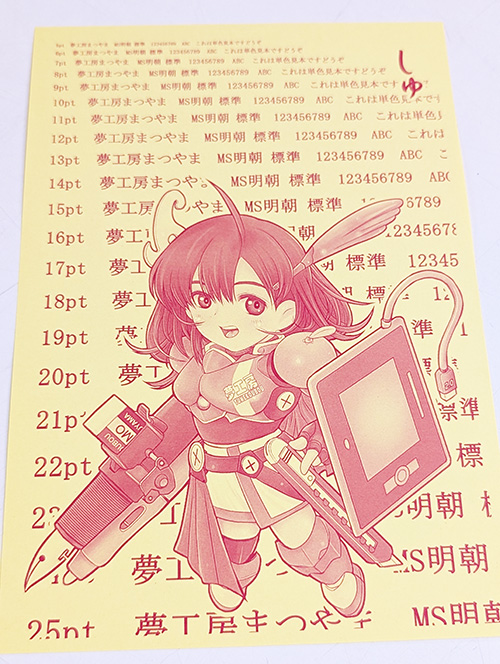 5pt 夢工房まつやま MS明朝 標準 123456789 ABC これは単色見本ですどうぞ
6pt 夢工房まつやま MS明朝 標準 123456789 ABC これは単色見本ですどうぞ
7pt 夢工房まつやま MS明朝 標準 123456789 ABC これは単色見本ですどうぞ
8pt 夢工房まつやま MS明朝 標準 123456789 ABC これは単色見本ですどうぞ
9pt 夢工房まつやま MS明朝 標準 123456789 ABC これは単色見本ですど
しゅ
10pt 夢工房まつやま MS明朝 標準 123456789 ABC これは単色見本で
11pt 夢工房まつやま MS明朝 標準 123456789 ABC これは単色
12pt 夢工房まつやま MS明朝 標準 123456789 ABC これは
13pt 夢工房まつやま MS明朝 標準 123456789 ABC こ
14pt 夢工房まつや MS明朝 標準 123456789 ABC
15pt 夢工房まつやま MS明朝 標準 123456789
16pt 夢工 MS明朝 標準 12345678
17pt 夢工 標準 1234
18pt 夢工 準 12
19pt 夢工 標準 1
20pt 夢工 標準
21pt 夢 標準
22pt 夢工 標
夢工 MS明朝
夢工房まつやま MS明朝
25pt 夢工房まつやま MS明朝
夢工房
MO